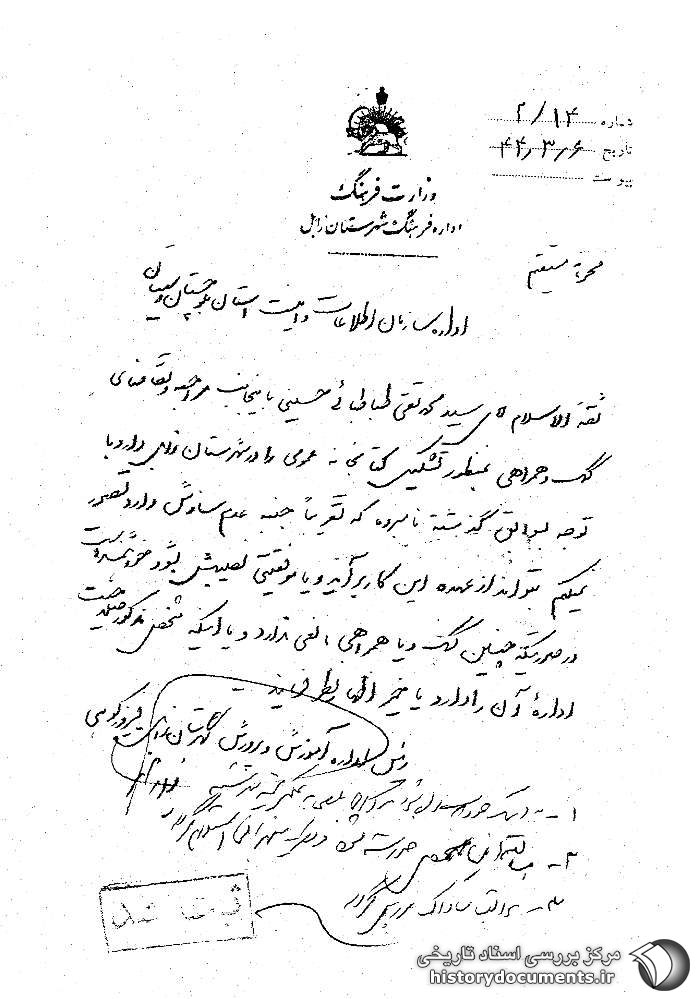 شماره ۲/۱۴
تاریخ ۴۴٫۳٫۶
پیوست
وزارت فرهنگ
اداره فرهنگ شهرستان زابل
محرمانه مستقیم
اداره سازمان اطلاعات و امنیت استان بلوچستان و سیستان
ثقة الاسلام آقای سید محمد تقی طباطبائی حسینی باینجانب مراجعه و تقاضای
کمک و همراهی بمنظور تشکیل کتابخانه عمومی را در شهرستان زابل دارد با
توجه بسوابق گذشته نامبرده که تقریباً جنبه عدم سازش دارد تصور
نمیکنم بتواند از عهده این کار برآید و یا موفقیتی نصیبش بشود خواهشمند است
در صورتیکه چنین کمک و یا همراهی مانعی ندارد و یا اینکه شخص مذکور صلاحیت
اداره آن را دارد یا خیر اظهار نظر فرمایند
رئیس اداره آموزش و پرورش شهرستان زابل فیروزکوهی
۱-
۲-
۳- مراتب ساواک بررسی گردد
ثبت شد
مرکز بررسی اسناد تاریخی
historydocuments.ir